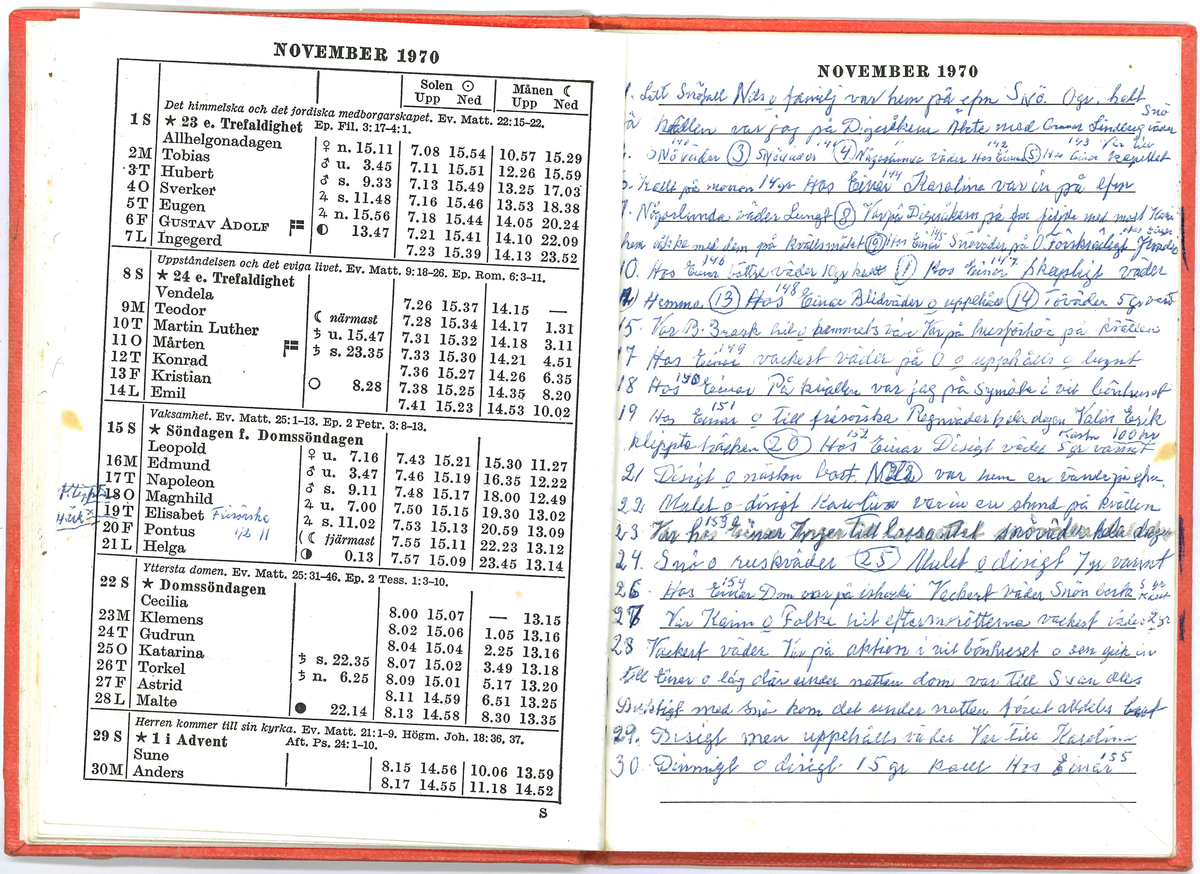 NOVEMBER 1970
Solen ☉ Månen ☾
Upp Ned Upp Ned
Det himmelska och det jordiska medborgarskapet. Ev. Matt. 22:15-22.
1 S ★ 23 e. Trefaldighet Ep. Fil. 3:17-4:1.
Allhelgonadagen ♀ n. 15.11 7.08 15.54 10.57 15.29
2M Tobias ♂ u. 3.45 7.11 15.51 12.26 15.59
3T Hubert ♂ s. 9.33 7.13 15.49 13.25 17.03
4O Sverker ♃ s. 11.48 7.16 15.46 13.53 18.38
5T Eugen ♃ n. 15.56 7.18 15.44 14.05 20.24
6F GUSTAV ADOLF ◐ 13.47 7.21 15.41 14.10 22.09
7L Ingegerd 7.23 15.39 14.13 23.52
Uppståndelsen och det eviga livet. Ev. Matt. 9:18-26. Ep. Rom. 6:3-11.
8 S ★ 24 e. Trefaldighet
Vendela 7.26 15.37 14.15 —
9M Teodor ☾ närmast 7.28 15.34 14.17 1.31
10T Martin Luther ♄ u. 15.47 7.31 15.32 14.18 3.11
11O Mårten ♄ s. 23.35 7.33 15.30 14.21 4.51
12T Konrad 7.36 15.27 14.26 6.35
13F Kristian ○ 8.28 7.38 15.25 14.35 8.20
14L Emil 7.41 15.23 14.53 10.02
Vaksamhet. Ev. Matt. 25:1-13. Ep. 2 Petr. 3:8-13.
15 S ★ Söndagen f. Domssöndagen
Leopold ♀ u. 7.16 7.43 15.21 15.30 11.27
16M Edmund ♂ u. 3.47 7.46 15.19 16.35 12.22
17T Napoleon ♂ s. 9.11 7.48 15.17 18.00 12.49
18O Magnhild ♃ u. 7.00 7.50 15.15 19.30 13.02
19T Elisabet Frisörska ♃ s. 11.02 7.53 15.13 20.59 13.09
20F Pontus ☾ fjärmast 7.55 15.11 22.23 13.12
21L Helga ◑ 0.13 7.57 15.09 23.45 13.14
Yttersta domen. Ev. Matt. 25:31-46. Ep. 2 Tess. 1:3-10.
22 S ★ Domssöndagen
Cecilia 8.00 15.07 — 13.15
23M Klemens 8.02 15.06 1.05 13.16
24T Gudrun 8.04 15.04 2.25 13.16
25O Katarina ♄ s. 22.35 8.07 15.02 3.49 13.18
26T Torkel ♄ n. 6.25 8.09 15.01 5.17 13.20
27F Astrid 8.11 14.59 6.51 13.25
28L Malte ● 22.14 8.13 14.58 8.30 13.35
Herren kommer till sin kyrka. Ev. Matt. 21:1-9. Högm. Joh. 18:36, 37.
29 S ★ 1 i Advent Aft. Ps. 24:1-10.
Sune 8.15 14.56 10.06 13.59
30M Anders 8.17 14.55 11.18 14.52
S
NOVEMBER 1970
1. Lätt Snöfall Nils o familj var hem på efm Snö. 0 gr. halt
kvällen var jag på Digeråkern Åkte med Gunnar Lindberg Snöväder
Snöväder (3) Snöväder (4) Någorlunda väder Hos Einar 142 (5) Hos Einar 143 skapligt
Kallt på morgon 14 gr Hos Einar 144 Karolina var in på efm
Någorlunda väder Lungt (8) Var på Digeråkern på
hem med dem på kvällsmötet (9) Hos Einar 145 Snöväder på O.
10. Hos Einar 146 bättre väder 10 gr kallt (11) Hos Einar 147 Skapligt väder
12 Hemma (13) Hos 148 Einar Blidväder o uppehåll (14) Töväder 5 gr varmt
15. Var B. Brask hit o hemmets vår Var på husförhör på kvällen
17 Hos Einar 149 vackert väder på O o uppehålls o lugnt
18 Hos 150 Einar På kvällen var jag på Symöte i vit bönhuset
19 Hos Einar 151 o till frisörska Regnväder hela dagen Valin Erik
klippte häcken (20) Hos 152 Einar Disigt väder 5 gr varmt Kostn 100 kr
21 Disigt o nästan bart. (22) var hem en vända på efm.
22. Mulet o disigt Karolina var in en stund på kvällen
23 Var hos 153 Einar Inger till lassarettet snöväder hela dagen
24. Snö o ruskväder (25) Mulet o disigt 7 gr varmt
26. Hos 154 Einar Dom var på ishocki Vackert väder Snön borta 5 gr kallt
27 Var Karin o Folke hit eftermorötterna vackert väder 2 gr
28 Vackert väder Var på auktion i vit bönhuset o sen gick in
till Einar o låg där under natten dom var till Svan Olles
med Snö kom det under natten förut alldeles bart
29. Disigt men uppehålls väder Var till Karolina
30. Dimmigt o disigt 15 gr kallt Hos Einar 155